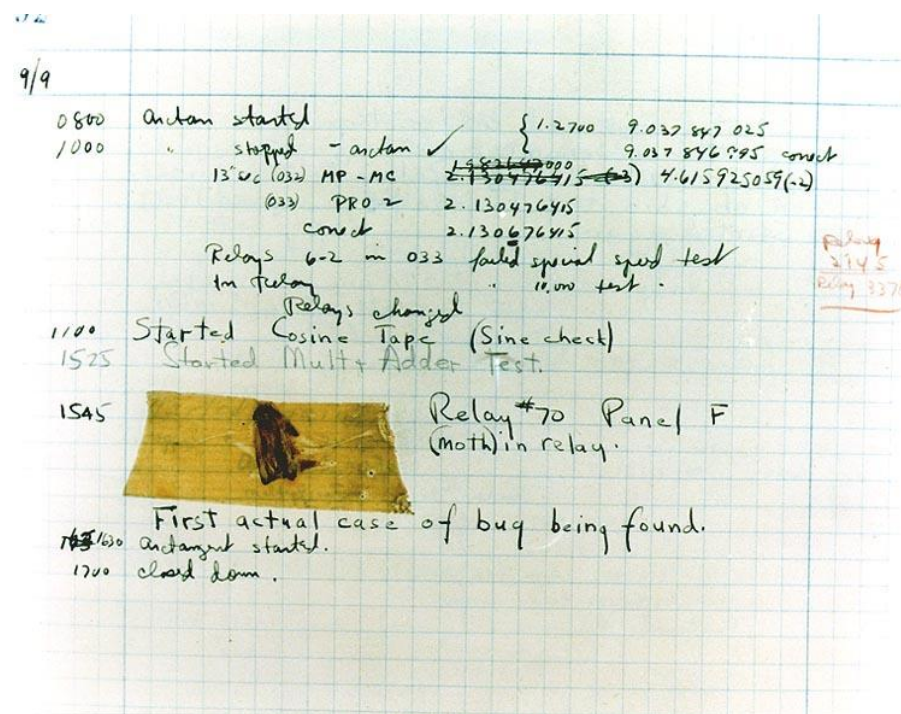 9/9
0800 arctan started { 1.2700 9.037 847 025
1000 " stopped - arctan ✓ 9.037 846 995 correct
13" sec (032) MP - MC 2.130476415 (-3) 4.615925059(-2)
(033) PRO 2 2.130476415
correct 2.130676415
Relays 6-2 in 033 failed special speed test
In relay " 10,000 test.
Relays changed
Relay
2145
Relay 3370
1100 Started Cosine Tape (Sine check)
1525 Started Mult+Adder Test.
1545 Relay #70 Panel F
(moth) in relay.
First actual case of bug being found.
1630 arctangent started.
1700 closed down.